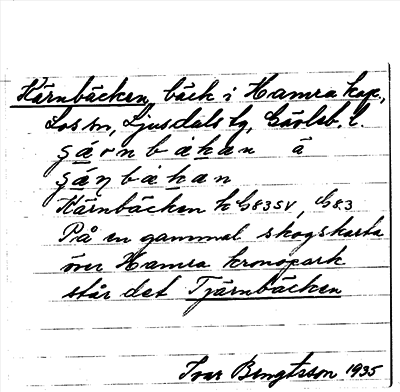 Kärnbäcken, bäck i Hamra kap.,
Los sn, Ljusdals tg, Gävleb. l.
ʂä̱rnbäkan å
ʂäṉbäkan
Kärnbäcken k G83SV, G83
På en gammal skogskarta
över Hamra kronopark
står det Tjärnbäcken
Ivar Bengtsson 1935